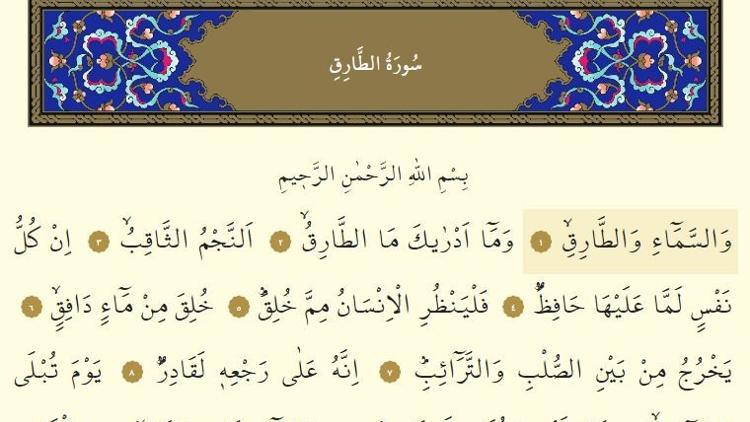 سُورَةُ الطَّارِقِ
بِسْمِ اللهِ الرَّحْمٰنِ الرَّحِيمِ
وَالسَّمَٓاءِ وَالطَّارِقِۙ ﴿١﴾ وَمَٓا اَدْرٰيكَ مَا الطَّارِقُۙ ﴿٢﴾ اَلنَّجْمُ الثَّاقِبُۙ ﴿٣﴾ اِنْ كُلُّ
نَفْسٍ لَمَّا عَلَيْهَا حَافِظٌۜ ﴿٤﴾ فَلْيَنْظُرِ الْاِنْسَانُ مِمَّ خُلِقَۜ ﴿٥﴾ خُلِقَ مِنْ مَٓاءٍ دَافِقٍۙ ﴿٦﴾
يَخْرُجُ مِنْ بَيْنِ الصُّلْبِ وَالتَّرَٓائِبِۜ ﴿٧﴾ اِنَّهُ عَلٰى رَجْعِهٖ لَقَادِرٌۜ ﴿٨﴾ يَوْمَ تُبْلَى